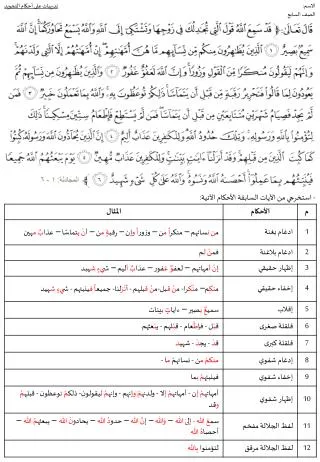 تدريبات على أحكام التجويد
الاسم:
الصف: السابع
قال تعالى: ﴿ قَدْ سَمِعَ اللَّهُ قَوْلَ الَّتِي تُجَادِلُكَ فِي زَوْجِهَا وَتَشْتَكِي إِلَى اللَّهِ وَاللَّهُ يَسْمَعُ تَحَاوُرَكُمَا إِنَّ اللَّهَ
سَمِيعٌ بَصِيرٌ ١ الَّذِينَ يُظَاهِرُونَ مِنكُم مِّن نِّسَائِهِم مَّا هُنَّ أُمَّهَاتِهِمْ إِنْ أُمَّهَاتُهُمْ إِلَّا اللَّائِي وَلَدْنَهُمْ
وَإِنَّهُمْ لَيَقُولُونَ مُنكَرًا مِّنَ الْقَوْلِ وَزُورًا وَإِنَّ اللَّهَ لَعَفُوٌّ غَفُورٌ ٢ وَالَّذِينَ يُظَاهِرُونَ مِن نِّسَائِهِمْ ثُمَّ
يَعُودُونَ لِمَا قَالُوا فَتَحْرِيرُ رَقَبَةٍ مِّن قَبْلِ أَن يَتَمَاسَّا ذَٰلِكُمْ تُوعَظُونَ بِهِ وَاللَّهُ بِمَا تَعْمَلُونَ خَبِيرٌ ٣ فَمَن
لَّمْ يَجِدْ فَصِيَامُ شَهْرَيْنِ مُتَتَابِعَيْنِ مِن قَبْلِ أَن يَتَمَاسَّا فَمَن لَّمْ يَسْتَطِعْ فَإِطْعَامُ سِتِّينَ مِسْكِينًا ذَٰلِكَ
لِتُؤْمِنُوا بِاللَّهِ وَرَسُولِهِ وَتِلْكَ حُدُودُ اللَّهِ وَلِلْكَافِرِينَ عَذَابٌ أَلِيمٌ ٤ إِنَّ الَّذِينَ يُحَادُّونَ اللَّهَ وَرَسُولَهُ كُبِتُوا
كَمَا كُبِتَ الَّذِينَ مِن قَبْلِهِمْ وَقَدْ أَنزَلْنَا آيَاتٍ بَيِّنَاتٍ وَلِلْكَافِرِينَ عَذَابٌ مُّهِينٌ ٥ يَوْمَ يَبْعَثُهُمُ اللَّهُ جَمِيعًا
فَيُنَبِّئُهُم بِمَا عَمِلُوا أَحْصَاهُ اللَّهُ وَنَسُوهُ وَاللَّهُ عَلَىٰ كُلِّ شَيْءٍ شَهِيدٌ ٦ ﴾ المجادلة: ١ - ٦
- استخرجي من الآيات السابقة الأحكام الآتية:
م الأحكام المثال
1 ادغام بغنة من نسائهم – منكراً من – وزوراً وإن – رقبةٍ من – أن يتماسا – عذابٌ مهين
2 ادغام بلاغنة فمن لم
3 إظهار حقيقي إن أمهاتهم – لعفوٌ غفور – عذابٌ أليم – شيءٍ شهيد
4 إخفاء حقيقي منكم– منكرا- من قبل- من قبلهم - أنزلنا- جميعاً فينبئهم - شيءٍ شهيد
5 إقلاب سميعٌ بصير – ءاياتٍ بينات
6 قلقلة صغرى قبل – فإطعام - قبلهم - يبعثهم
7 قلقلة كبرى قد - يجد - شهيد
8 إدغام شفوي منكم من - نسائهم ما -
9 إخفاء شفوي فينبئهم بما
10 إظهار شفوي أمهاتهم إن - أمهاتهم إلا - ولدنهم وإنهم - وإنهم ليقولون- ذلكم توعظون - قبلهم
وقد
11 لفظ الجلالة مفخم سمع الله - إلى الله – والله – إنَّ الله – حدودُ الله – يحادون الله – يبعثهم الله –
أحصاهُ الله
12 لفظ الجلالة مرقق لتؤمنوا بالله